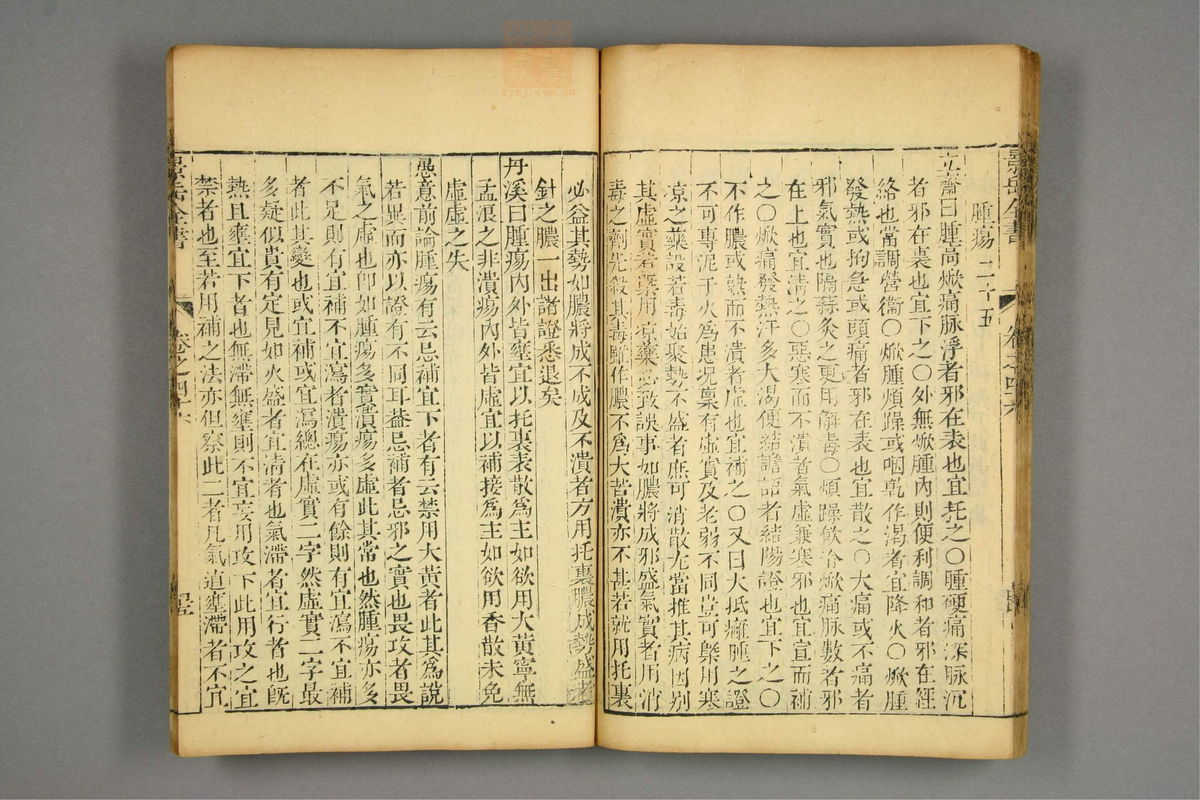 景岳全書
卷之四六
腫瘍 二十五
立齋曰腫高焮痛脉浮者邪在表也宜托之○腫硬痛深脉沉
者邪在裏也宜下之○外無焮腫內則便利調和者邪在經
絡也當調營衞○焮腫煩躁或咽乾作渴者宜降火○焮腫
發熱或拘急或頭痛者邪在表也宜散之○大痛或不痛者
邪氣實也隔蒜灸之更用解毒○煩躁飲冷焮痛脉數者邪
在上也宜清之○惡寒而不潰者氣虛兼寒邪也宜宣而補
之○焮痛發熱汗多大渴便結譫語者結陽證也宜下之○
不作膿或熟而不潰者虛也宜補之○又曰大抵癰腫之證
不可專泥于火爲患况稟有虛實及老弱不同豈可槩用寒
凉之藥設若毒始聚勢不盛者庶可消散尤當推其病因別
其虛實若槩用凉藥必致誤事如膿將成邪盛氣實者用消
毒之劑先殺其毒雖作膿不爲大苦潰亦不甚若就用托裏
必益其勢如膿將成不成及不潰者方用托裏膿成勢盛者
針之膿一出諸證悉退矣
丹溪曰腫瘍內外皆壅宜以托裏表散爲主如欲用大黄寧無
孟浪之非潰瘍內外皆虛宜以補接爲主如欲用香散未免
虛虛之失
愚意前論腫瘍有云忌補宜下者有云禁用大黄者此其爲說
若異而亦以證有不同耳葢忌補者忌邪之實也畏攻者畏
氣之虛也卽如腫瘍多實潰瘍多虛此其常也然腫瘍亦多
不足則有宜補不宜瀉者潰瘍亦或有餘則有宜瀉不宜補
者此其變也或宜補或宜瀉總在虛實二字然虛實二字最
多疑似貴有定見如火盛者宜清者也氣滯者宜行者也旣
熱且壅宜下者也無滯無壅則不宜妄用攻下此用攻之宜
禁者也至若用補之法亦但察此二者凡氣道壅滯者不宜
景岳全書
卷之四六
zysj.com.cn